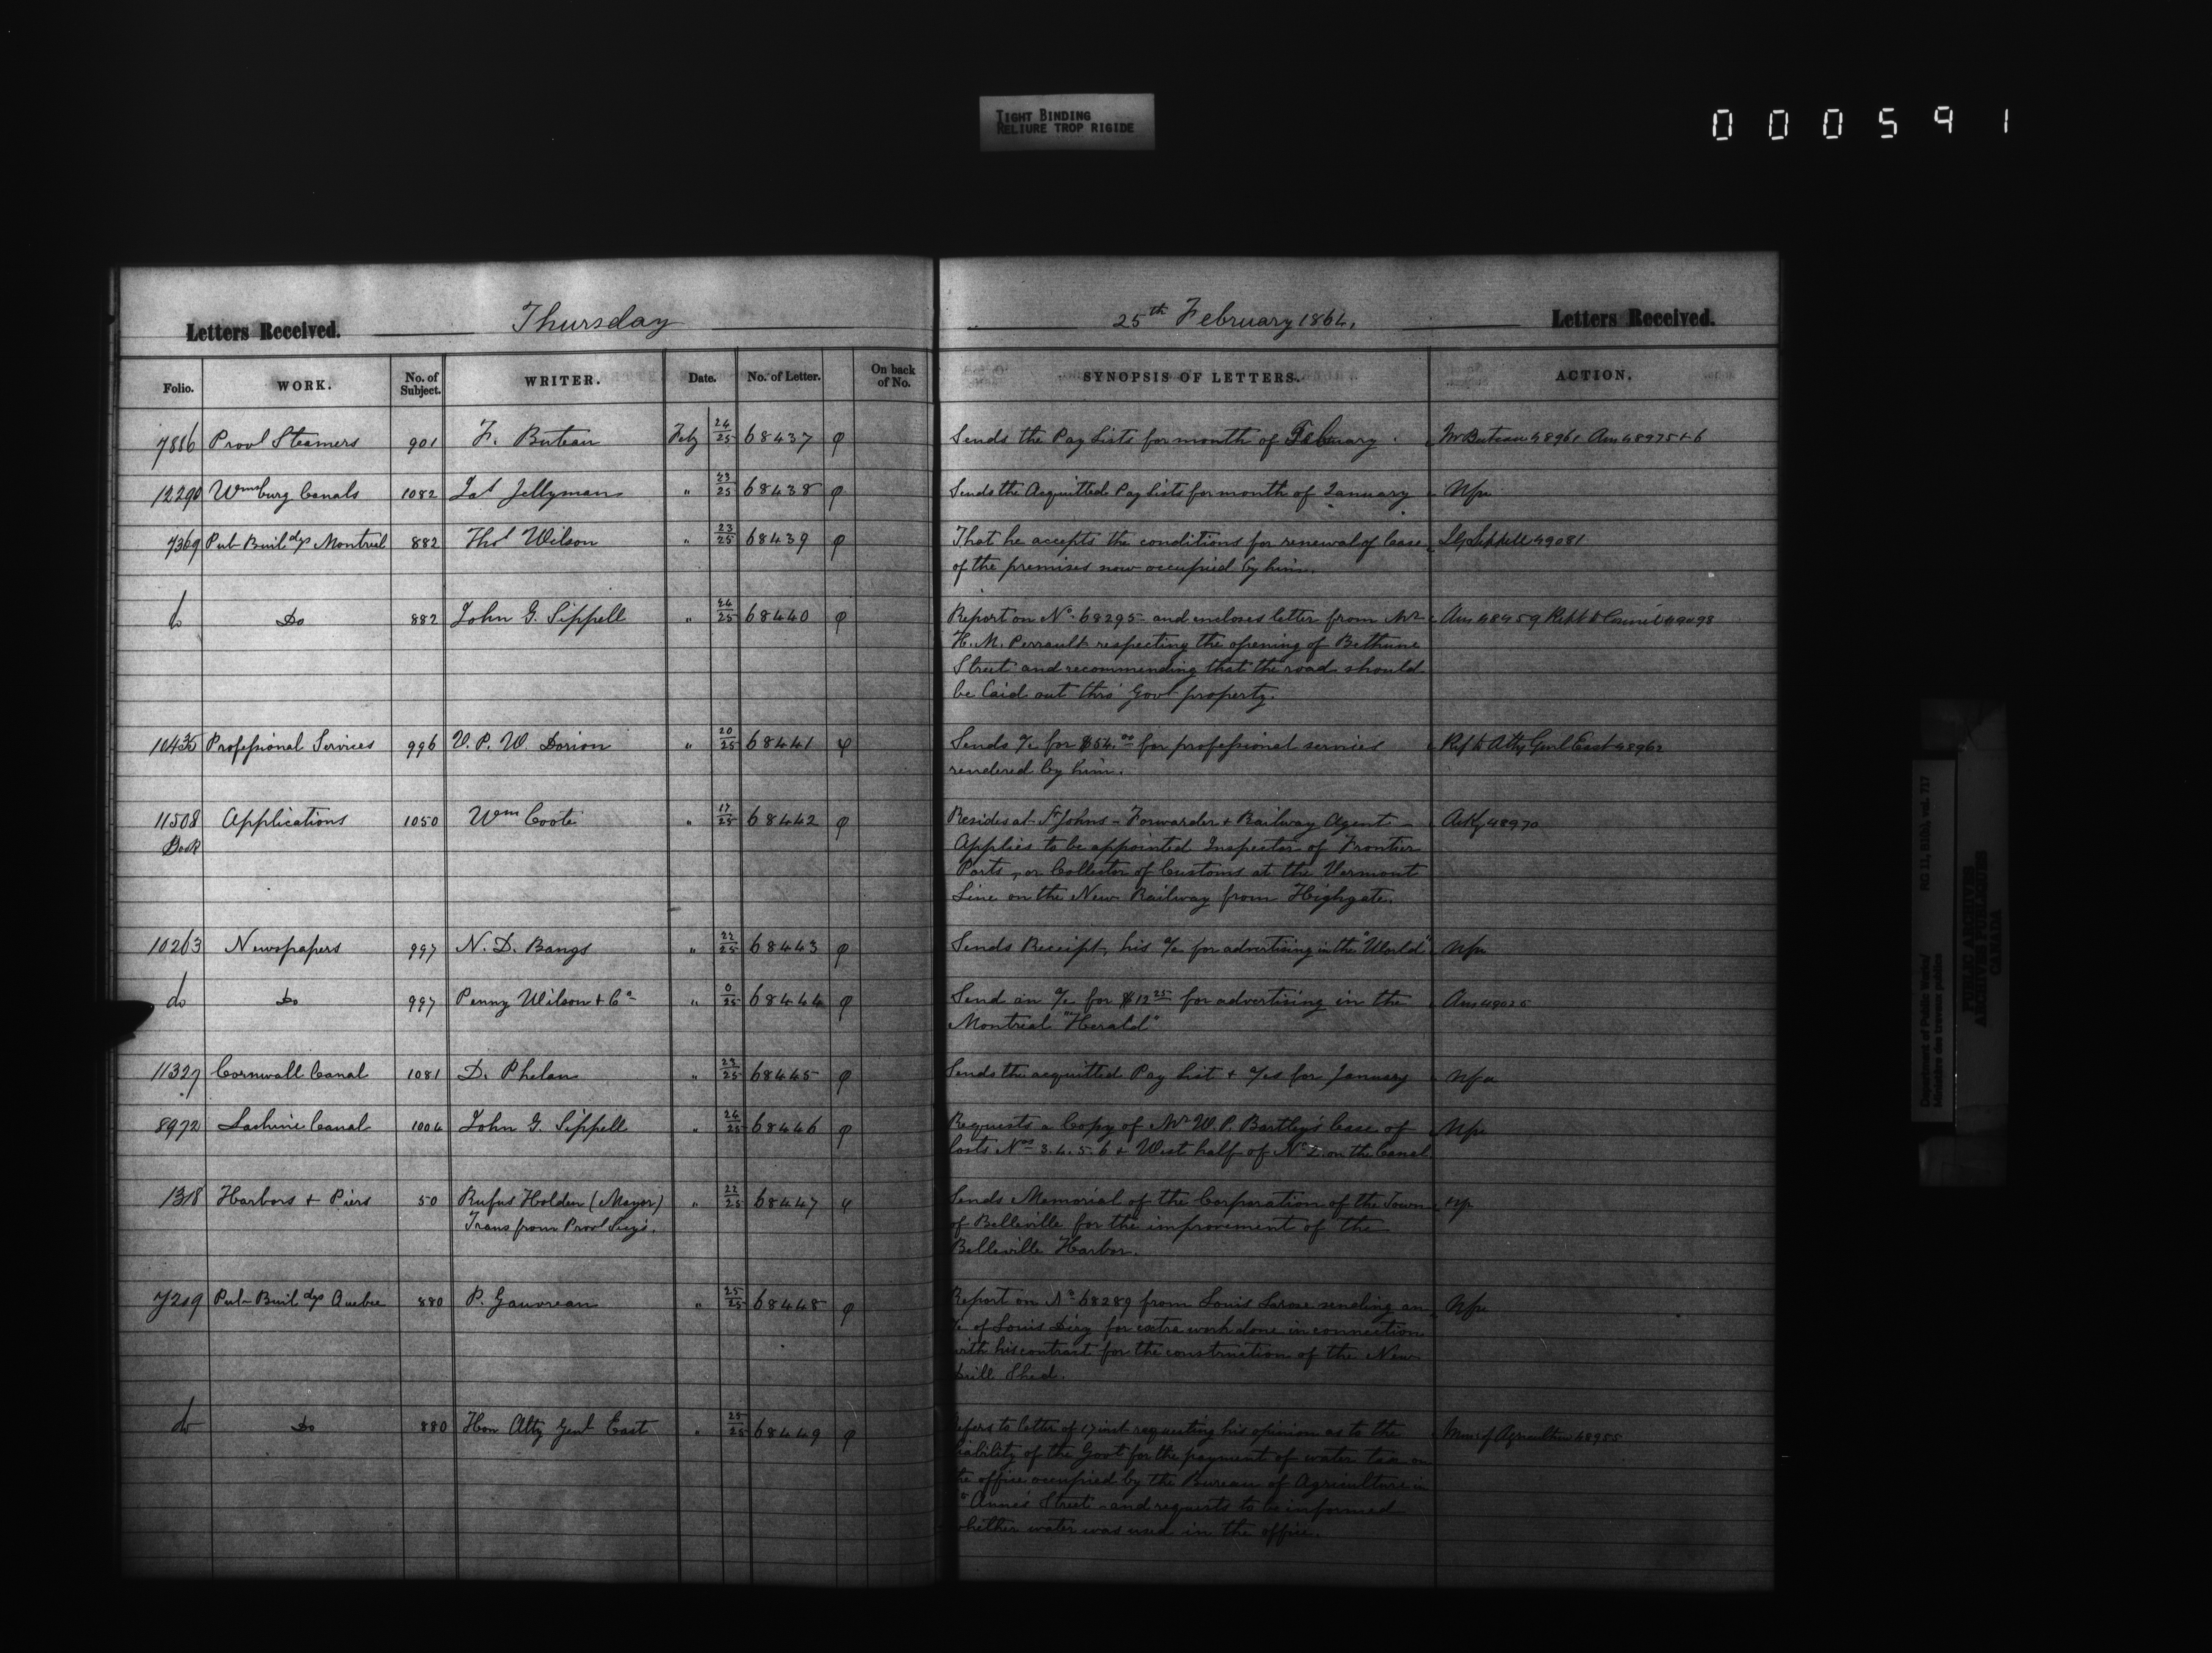 TIGHT BINDING
RELIURE TROP RIGIDE
000591
Letters Received. Thursday 25th February 1864. Letters Received.
Folio. WORK. No. of Subject. WRITER. Date. No. of Letter. On back of No. SYNOPSIS OF LETTERS. ACTION.
7886 Provl Steamers 901 F. Buteau Feby 24/25 68437 φ Sends the Pay Lists for month of February. Mr Buteau 48961 Ans 48975+6
12290 Wmsburg Canals 1082 Jas Jellyman " 23/25 68438 φ Sends the Acquitted Pay Lists for month of January
7369 Pub Buildgs Montreal 882 Thos Wilson " 23/25 68439 φ That he accepts the conditions for renewal of lease J G Sippell 49081
of the premises now occupied by him.
do Do 882 John G. Sippell " 24/25 68440 φ Report on No. 68295 and encloses letter from Mr
H. M. Perrault respecting the opening of Bethune
Street and recommending that the road should
be laid out thro' Govt property.
10435 Professional Services 996 V. P. W. Dorion " 20/25 68441 φ Sends a/c for $54.00 for professional services Ref to Atty Genl East 48962
rendered by him.
11508 Applications 1050 Wm Coote " 17/25 68442 φ Resides at St Johns - Forwarder + Railway Agent Ackg 48970
Book Applies to be appointed Inspector of Frontier
Ports, or Collector of Customs at the Vermont
Line on the New Railway from Highgate.
10263 Newspapers 997 N. D. Bangs " 22/25 68443 φ Sends Receipt, his a/c for advertising in the "World"
do Do 997 Penny Wilson + Co " 0/25 68444 φ Send an a/c for $12.25 for advertising in the Ans 49025
Montreal "Herald"
11327 Cornwall Canal 1081 D. Phelan " 23/25 68445 φ Sends the acquitted Pay List + a/cs for January
8972 Lachine Canal 1004 John G. Sippell " 24/25 68446 φ Requests a Copy of Mr W. P. Bartley's lease of
Lots Nos 3.4.5.6 + West half of No 2 on the Canal.
1318 Harbors + Piers 50 Rufus Holden (Mayor) " 22/25 68447 φ Sends Memorial of the Corporation of the Town
Trans from Provl Secy's. of Belleville for the improvement of the
Belleville Harbor.
7209 Pub Buildgs Quebec 880 P. Gauvreau " 25/25 68448 φ Report on No 68289 from Louis Larose sending an
a/c of Louis for extra work done in connection
with his contract for the construction of the New
Drill Shed.
do Do 880 Hon Atty Genl East " 25/25 68449 φ Refers to letter of 17 inst requesting his opinion as to the Min of Agriculture 48955
liability of the Govt for the payment of water tax on
the office occupied by the Bureau of Agriculture in
St Anne's Street and requests to be informed
whether water was used in the office.
Department of Public Works/ RG 11, B1(b), vol. 717
Ministère des travaux publics
PUBLIC ARCHIVES
ARCHIVES PUBLIQUES
CANADA